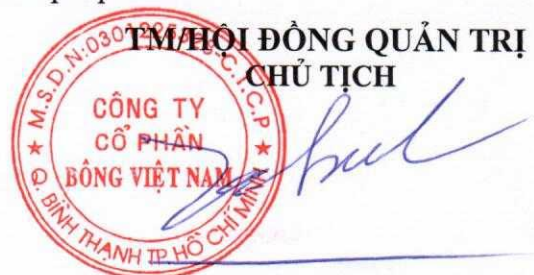 TM/HỘI ĐỒNG QUẢN TRỊ
CHỦ TỊCH
M.S.D.N:
C.T.C.P
CÔNG TY
CỔ PHẦN
BÔNG VIỆT NAM
Q. BÌNH THẠNH TP. HỒ CHÍ MINH